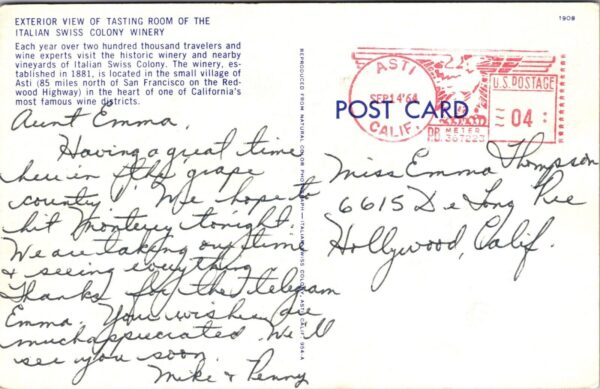 EXTERIOR VIEW OF TASTING ROOM OF THE
ITALIAN SWISS COLONY WINERY
Each year over two hundred thousand travelers and
wine experts visit the historic winery and nearby
vineyards of Italian Swiss Colony. The winery, es-
tablished in 1881, is located in the small village of
Asti (85 miles north of San Francisco on the Red-
wood Highway) in the heart of one of California's
most famous wine districts.
Aunt Emma,
Having a great time
here in the grape
country! We hope to
hit Monterey tonight.
We are taking our time
& seeing everything.
Thanks for the telegram
Emma. Your wishes are
much appreciated. We'll
see you soon.
Mike & Penny
REPRODUCED FROM NATURAL COLOR PHOTOGRAPH—ITALIAN SWISS COLONY, ASTI, CALIF.
1908
ASTI
SEP 14'64
CALIF.
U.S. POSTAGE
04
P.B. METER
POST CARD
Miss Emma Thompson
6615 De Long Pre
Hollywood, Calif.